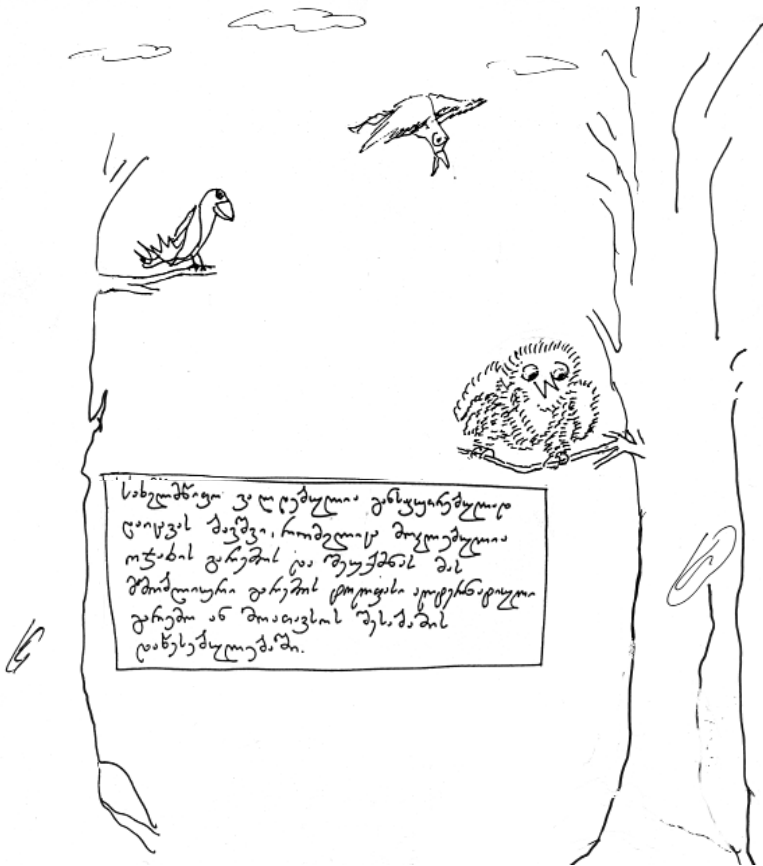 სახელმწიფო ვალდებულია განსაკუთრებულად
დაიცვას ბავშვი, რომელიც მოკლებულია
ოჯახის გარემოს და შეუქმნას მას
მშობლიური გარემოს ტოლფასი ალტერნატიული
გარემო ან მოათავსოს შესაბამის
დაწესებულებაში.